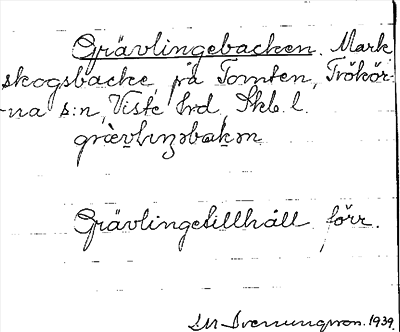 Grävlingebacken. Mark
skogsbacke på Tomten, Trökör-
na s:n, Viste hrd, Skb. l.
grævlıŋəbakən
Grävlingetillhåll förr.
1939